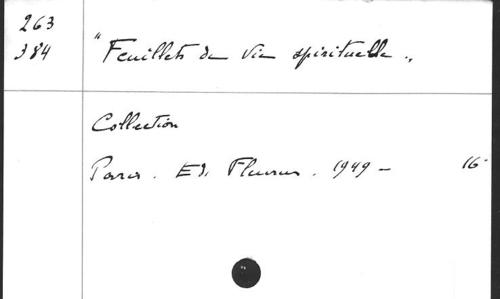 263
384
"Feuillets de Vie spirituelle".
Collection
Paris. Ed. Fleurus. 1949 —
16°